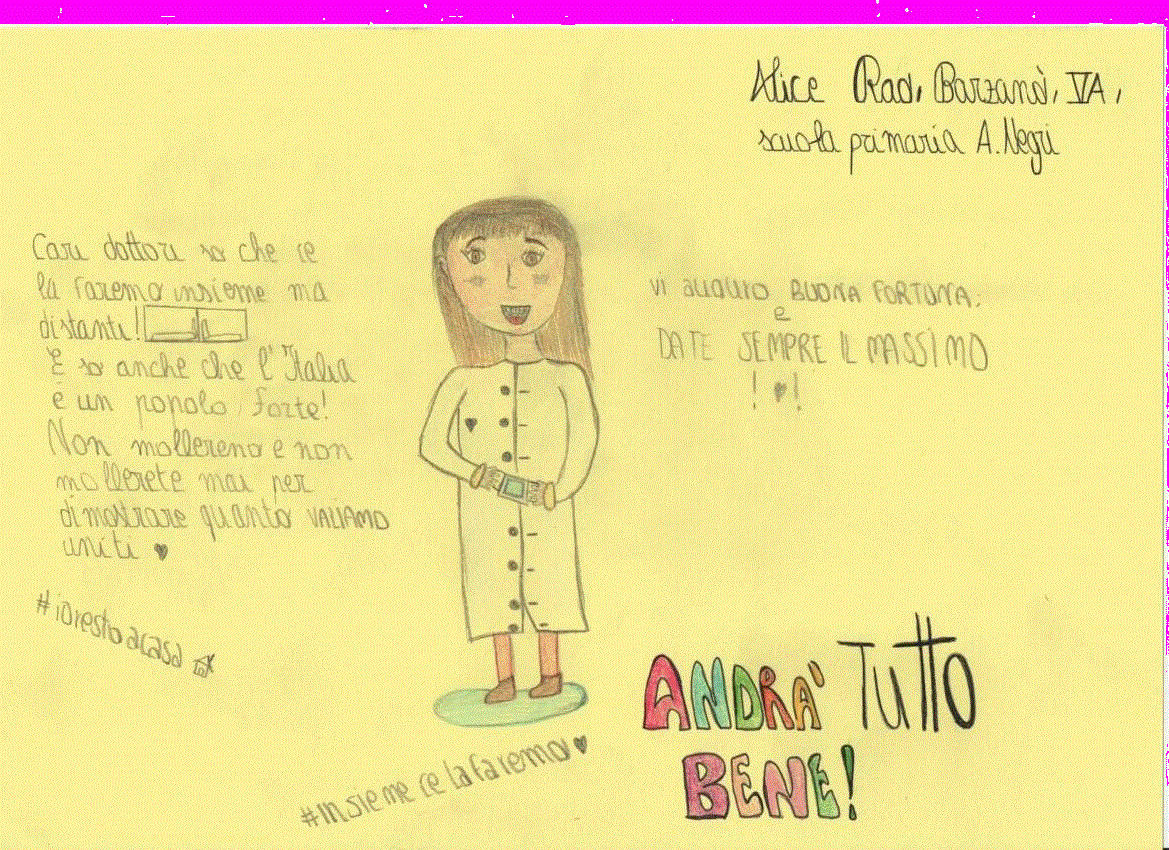 Alice Rad, Barzanò, VA,
scuola primaria A. Negri
Cari dottori so che ce
la faremo insieme ma
distanti!
E so anche che l'Italia
è un popolo forte!
Non molleremo e non
mollerete mai per
dimostrare quanto VALIAMO
uniti ♥
#iorestoacasa
vi auguro BUONA FORTUNA.
e
DATE SEMPRE IL MASSIMO
! ♥ !
ANDRA' TUTTO
BENE!
#Insieme ce la faremo! ♥